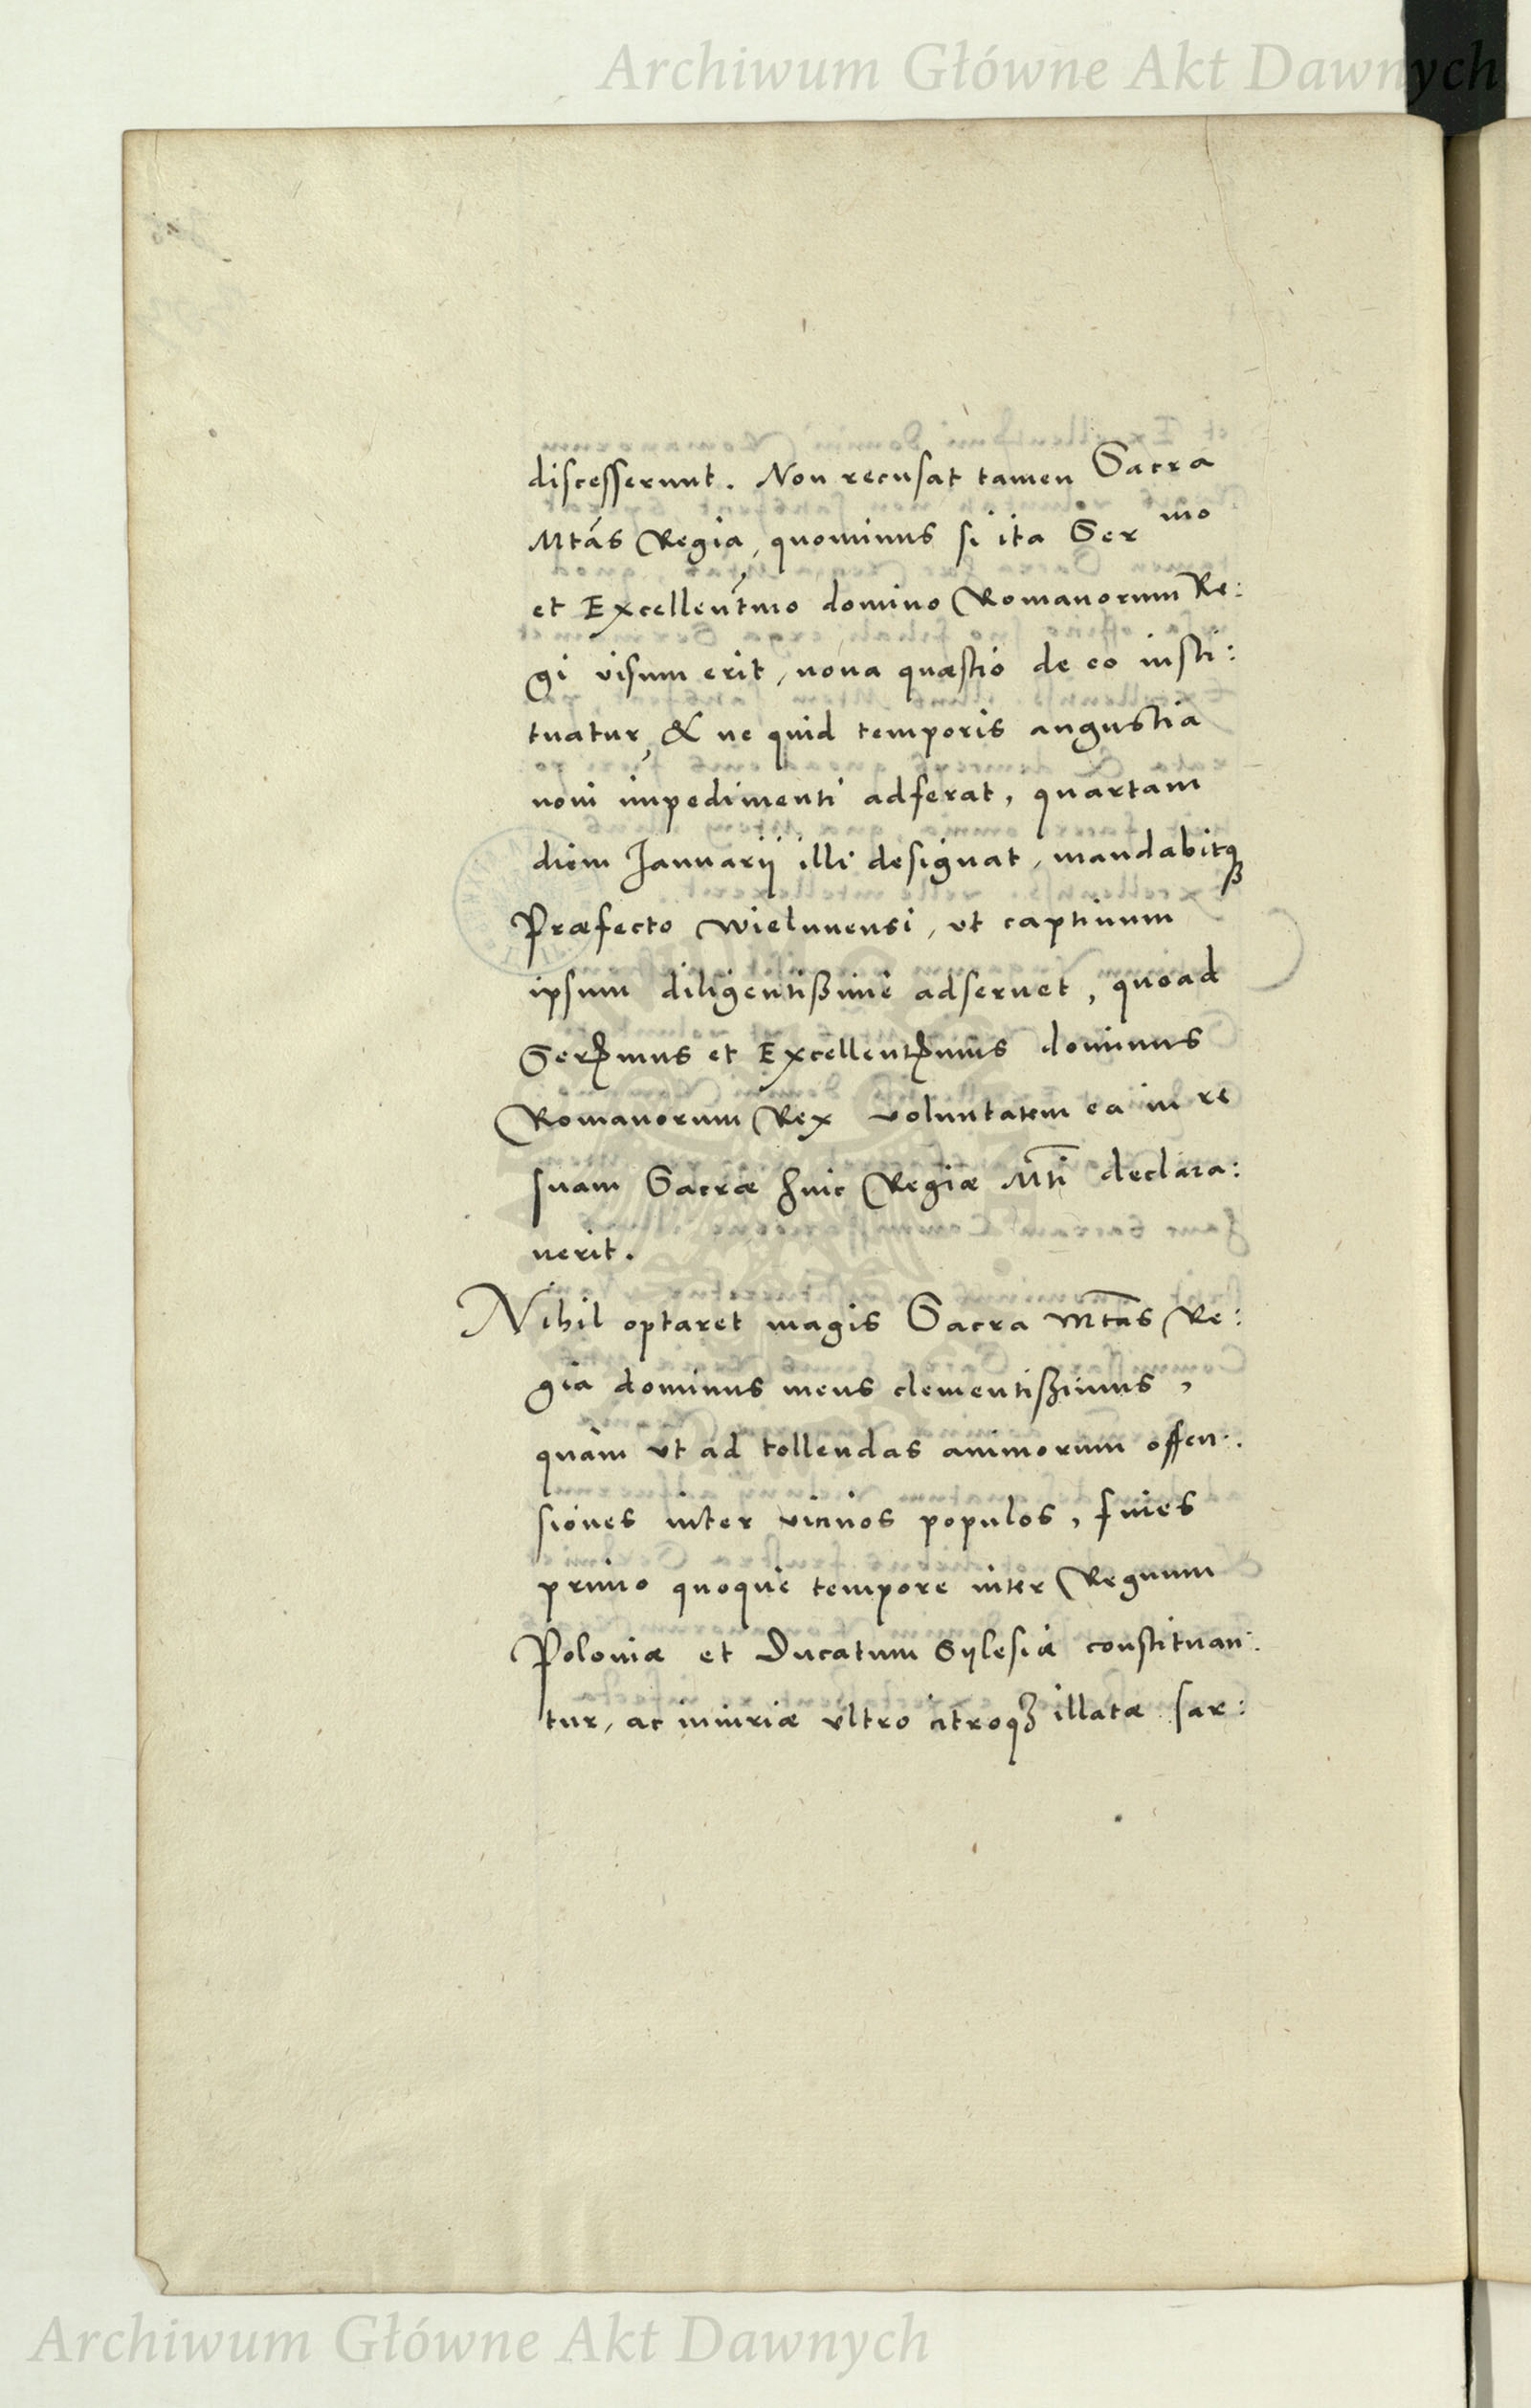 Archiwum Główne Akt Dawnych
discesserunt. Non recusat tamen Sacra
Mtás Regia, quominus si ita Ser mo
et Excellentmo domino Romanorum Re:
gi visum erit, nova quæstio de eo insti:
tuatur, & ne quid temporis angustia
novi impedimenti adferat, quartam
diem Januarij illi designat, mandabitq
Præfecto Wielunensi, vt captiuum
ipsum diligentißimè adseruet, quoad
Sermus et Excellentmus dominus
Romanorum Rex voluntatem ea in re
suam Sacræ huic Regiæ Mti declara:
uerit.
Nihil optaret magis Sacra Mtas Re:
gia dominus meus clementißimus,
quàm vt ad tollendas animorum offen:
siones inter vicinos populos, fines
primo quoque tempore inter Regnum
Poloniæ et Ducatum Sylesiæ constituan:
tur, ac iniuriæ vltro citroq3 illatæ sar:
Archiwum Główne Akt Dawnych